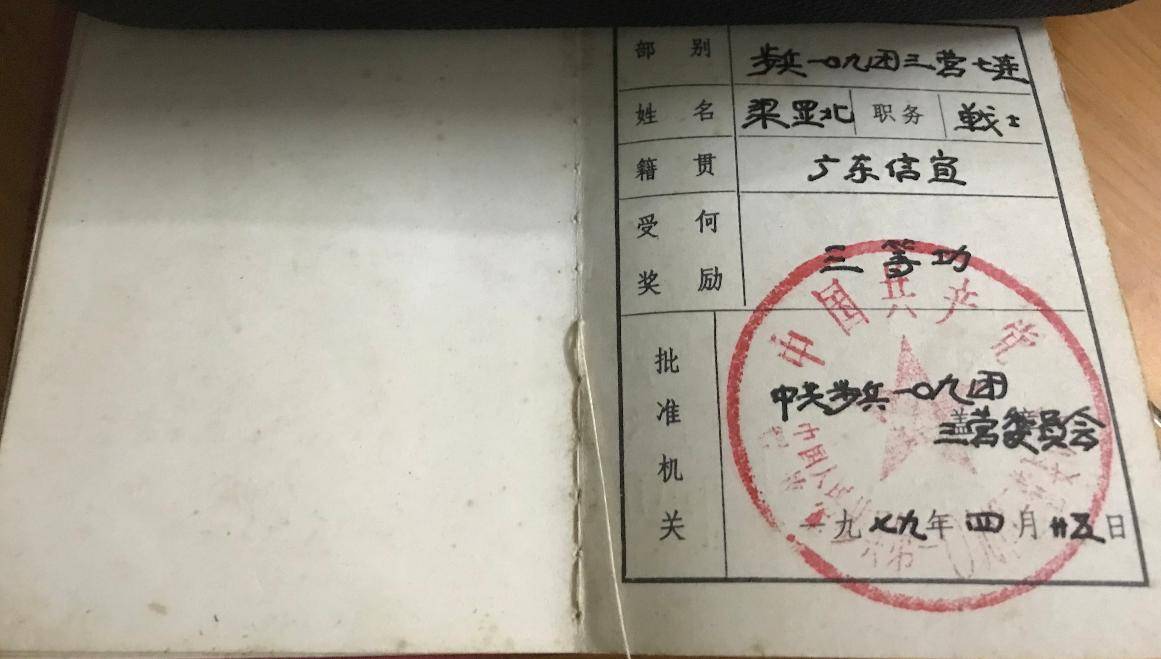 部别 步兵一〇九团三营七连
姓名 梁罡北 职务 战士
籍贯 广东信宜
受何奖励 三等功
批准机关
中国共产党
中共步兵一〇九团
三营委员会
一九七九年四月廿五日